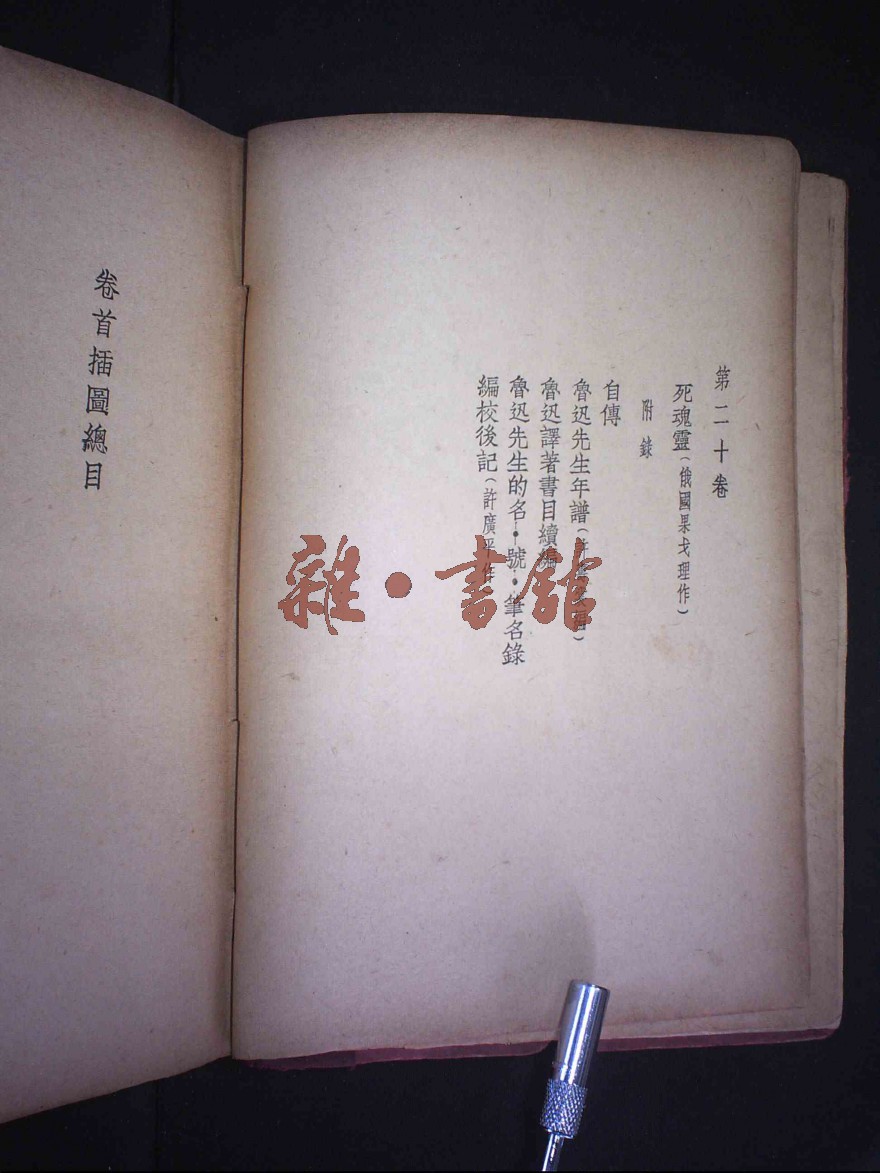 第二十卷
死魂靈(俄國果戈理作)
附錄
自傳
魯迅先生年譜(
魯迅譯著書目續編
魯迅先生的名·號·筆名錄
編校後記(許廣平作)
卷首插圖總目
雜·書館